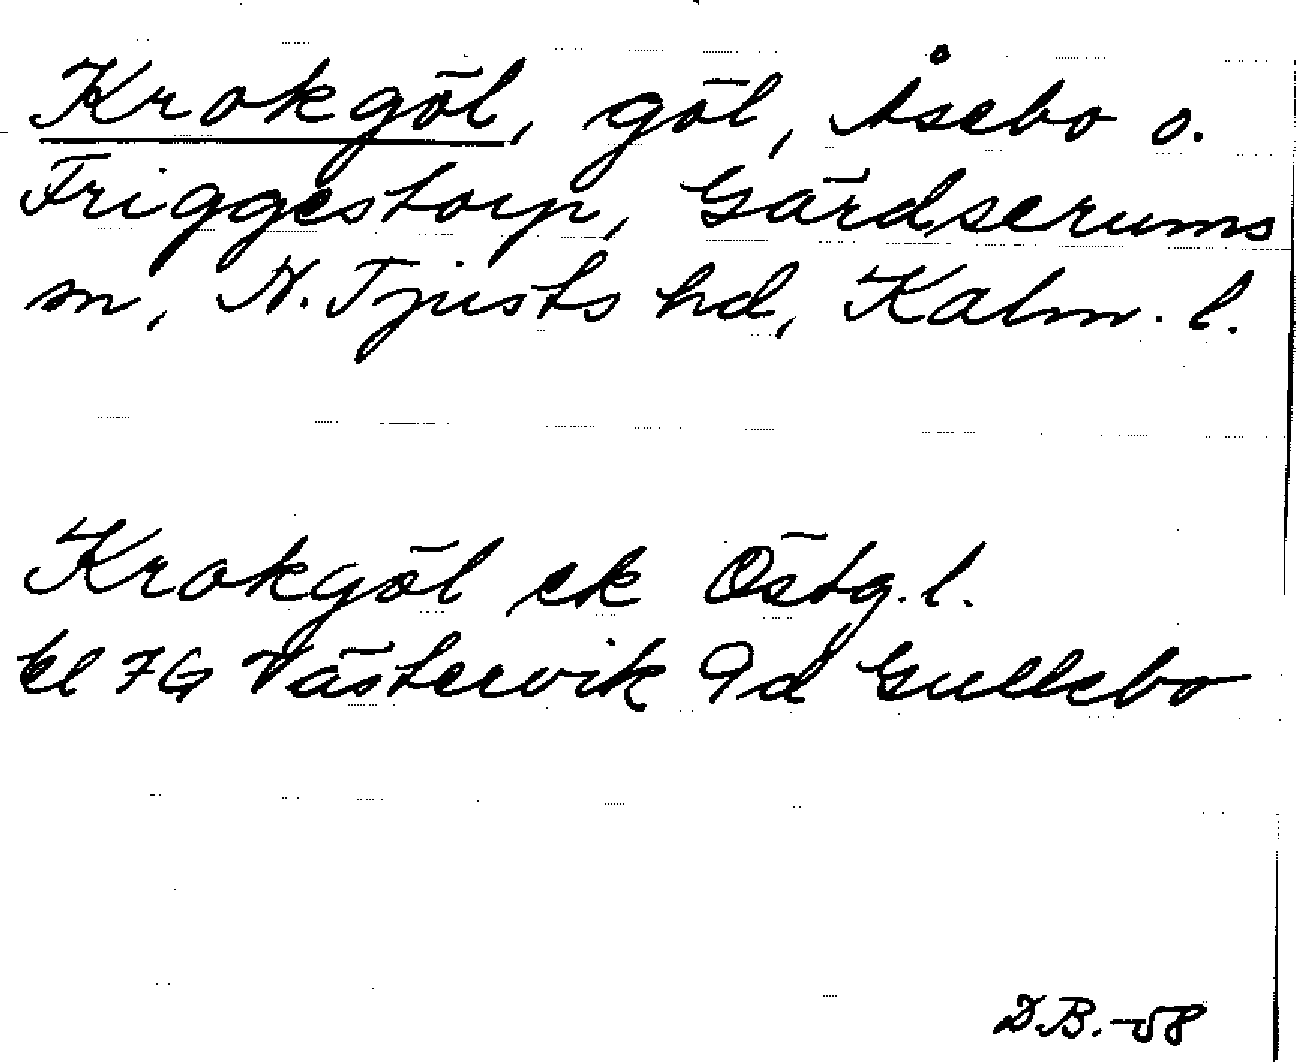 Krokgöl, göl, Åsebo o.
Friggestorp, Gärdserums
sn, N. Tjusts hd, Kalm. l.
Krokgöl ek Östg. l.
bl 7G Västervik 9d Gullebo
D.B. -58